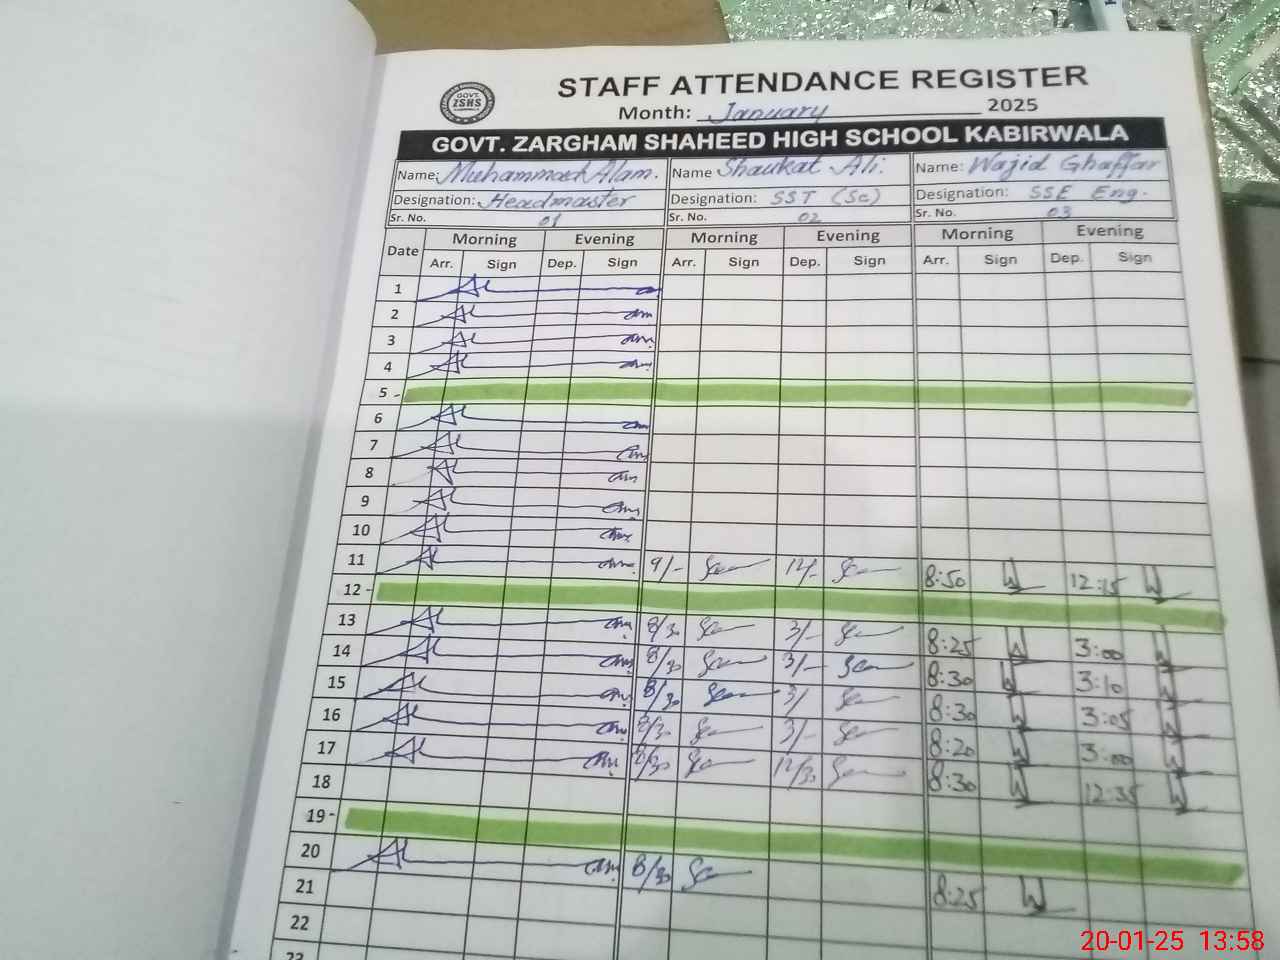 GOVT.
ZSHS
STAFF ATTENDANCE REGISTER
Month: January 2025
GOVT. ZARGHAM SHAHEED HIGH SCHOOL KABIRWALA
Name: Muhammad Alam. Name Shaukat Ali. Name: Wajid Ghaffar
Designation: Headmaster Designation: SST (Sc) Designation: SSE Eng.
Sr. No. 01 Sr. No. 02 Sr. No. 03
Date Morning Evening Morning Evening Morning Evening
Arr. Sign Dep. Sign Arr. Sign Dep. Sign Arr. Sign Dep. Sign
1
2
3
4
5 -
6
7
8
9
10
11 9/- 12/- 8:50 12:15
12 -
13 8/30 3/- 8:25 3:00
14 8/30 3/- 8:30 3:10
15 8/30 3/ 8:30 3:05
16 8/30 3/- 8:20 3:00
17 8/30 12/30 8:30 12:35
18
19 -
20 8/30 8:25
21
22
23
20-01-25 13:58